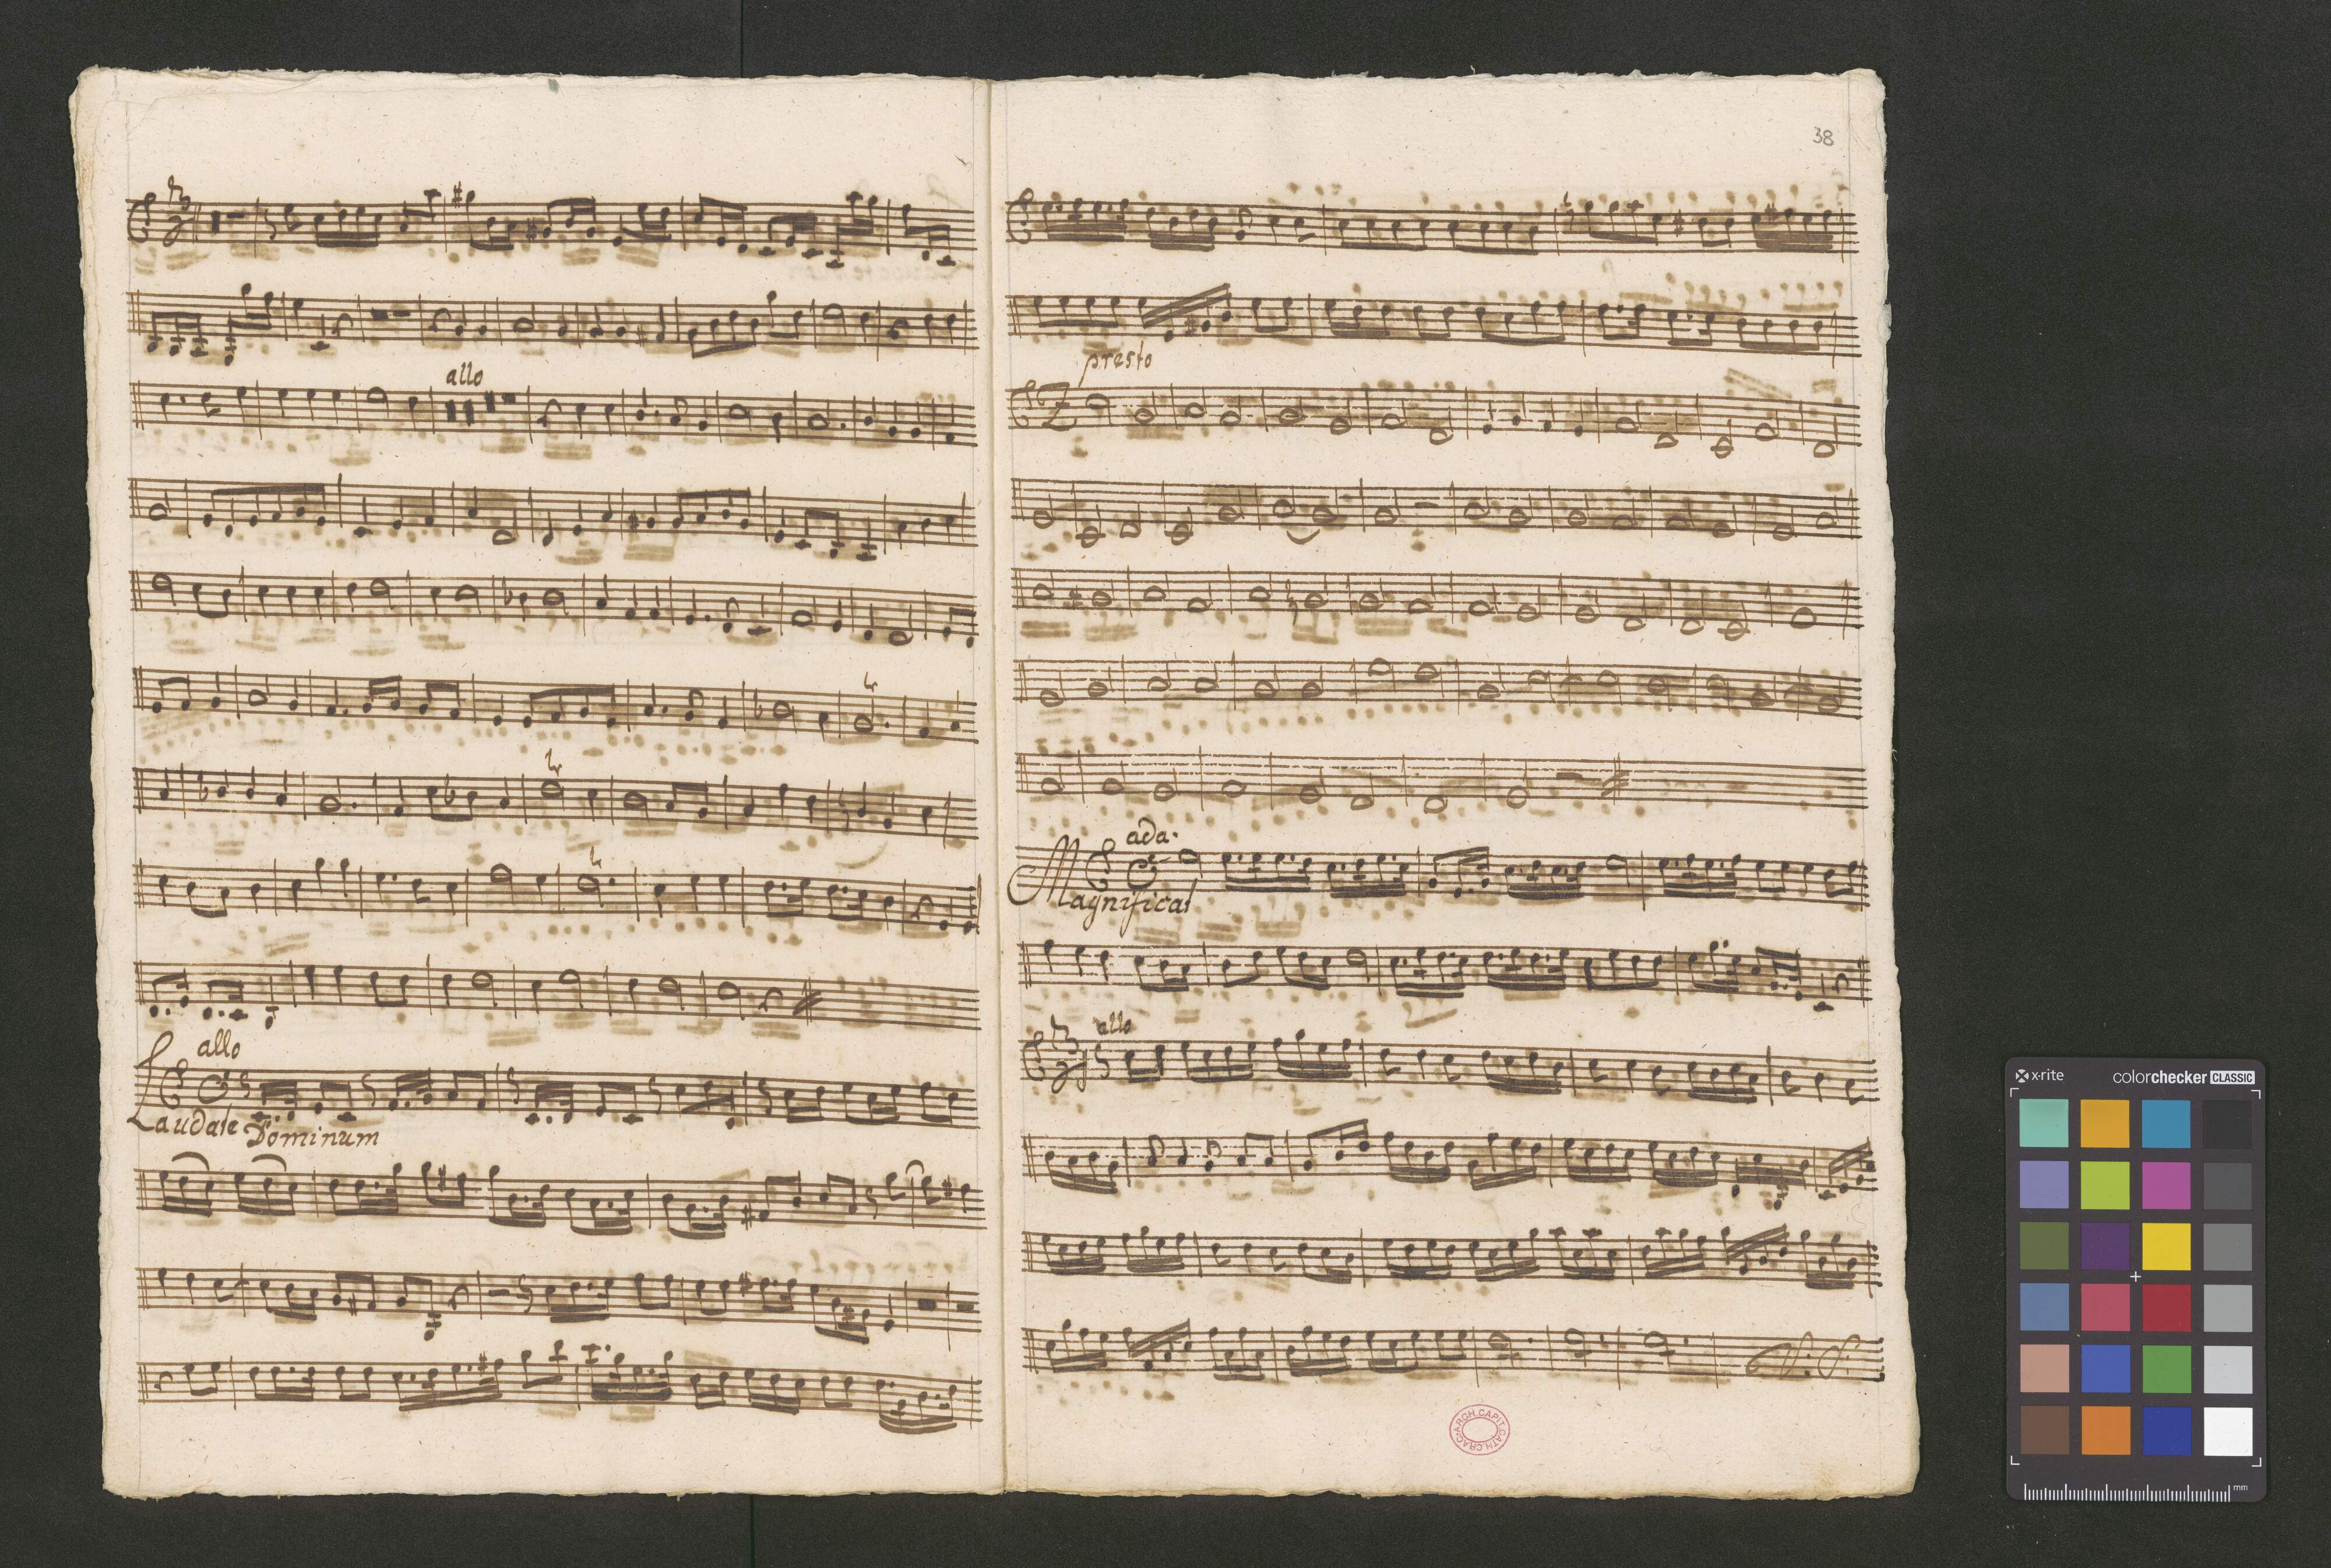 allo
allo
Laudate Dominum
38
presto
ada.
Magnificat
allo
ARCH. CAPIT. CATH. CRAC.
x-rite
colorchecker CLASSIC
mm